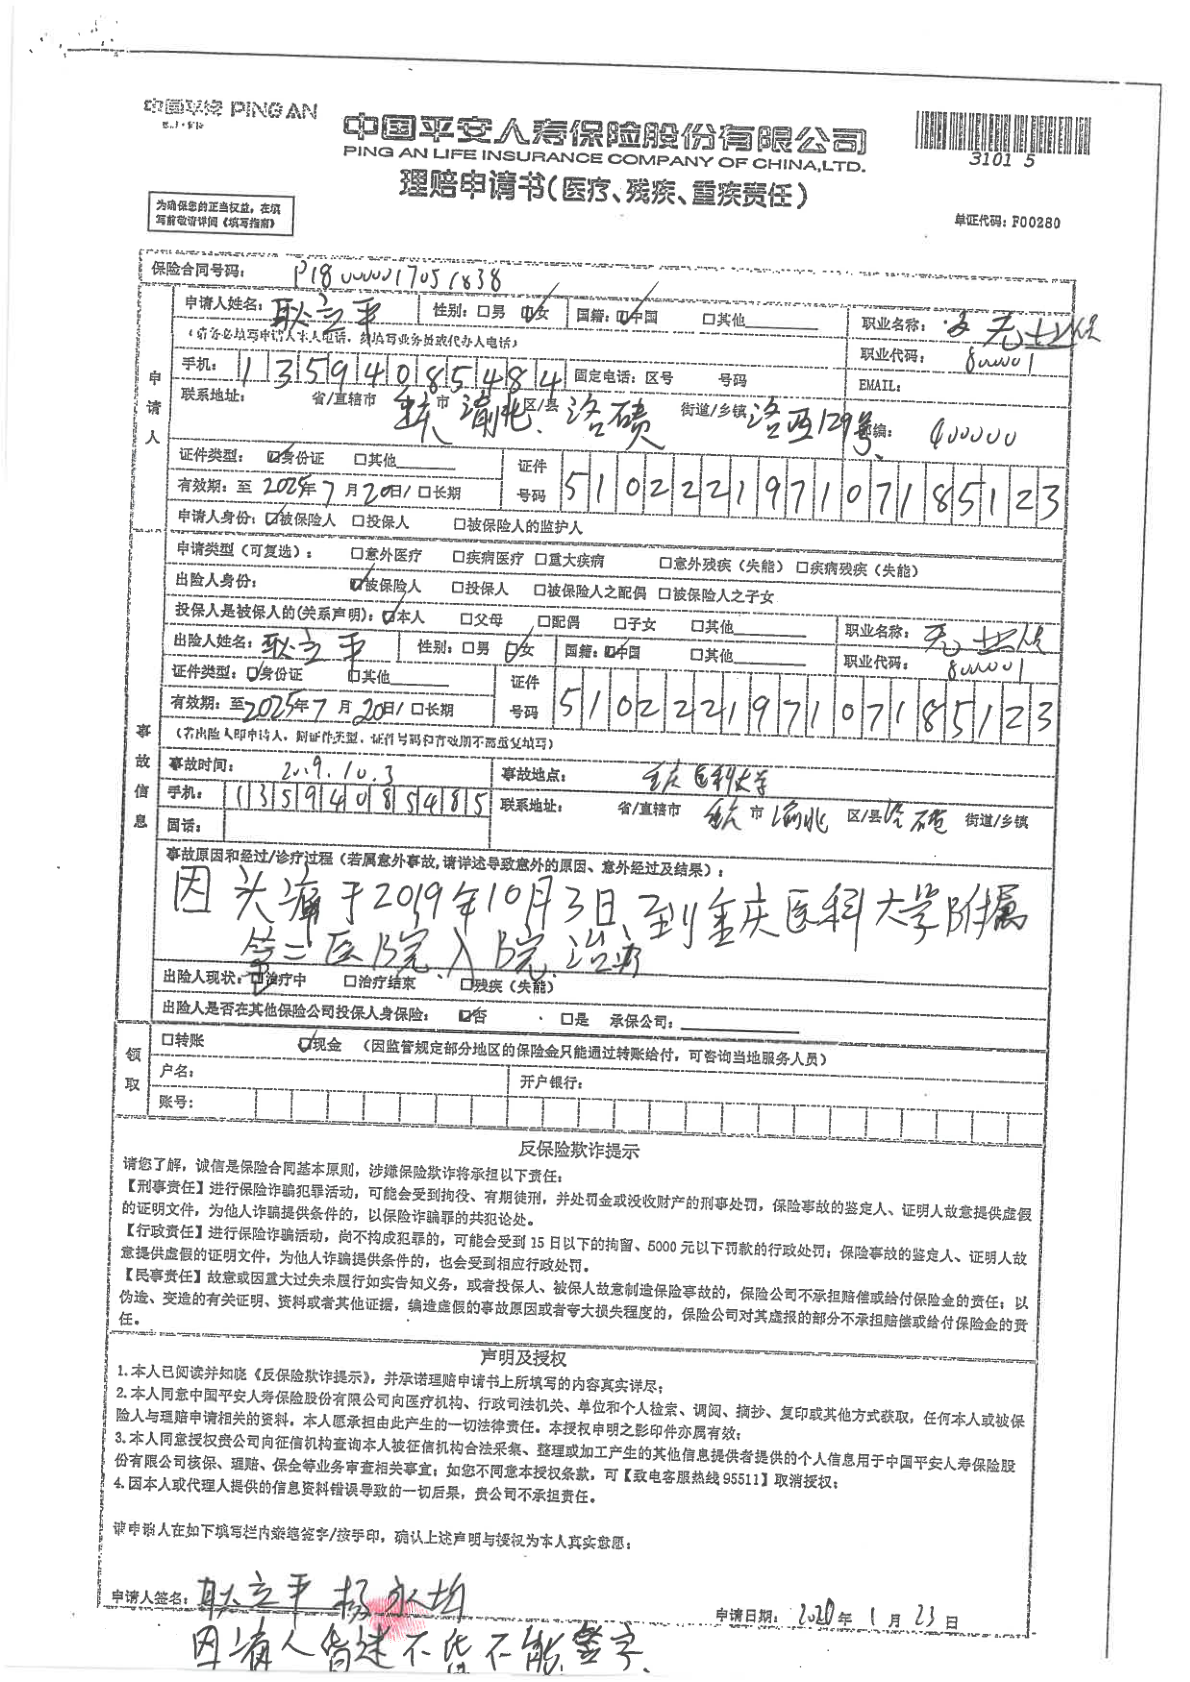 中国平安 PING AN
中国平安人寿保险股份有限公司
PING AN LIFE INSURANCE COMPANY OF CHINA,LTD.
理赔申请书(医疗、残疾、重疾责任)
3101 5
为确保您的正当权益,在填
写前敬请详阅《填写指南》
单证代码:F00280
保险合同号码: P180000017051838
申请人
申请人姓名: 耿立平 性别:□男 ☑女 国籍:☑中国 □其他 职业名称: 无业
(请务必填写申请人本人电话,勿填写业务员或代办人电话) 职业代码: 8000001
手机: 13594085484 固定电话:区号 号码 EMAIL:
联系地址: 省/直辖市 重庆 市 渝北 区/县 洛碛 街道/乡镇 洛西129号 邮编: 400000
证件类型: ☑身份证 □其他 证件号码 510222197107185123
有效期:至 2025年7月20日/□长期
申请人身份:☑被保险人 □投保人 □被保险人的监护人
事故信息
申请类型(可复选): □意外医疗 □疾病医疗 □重大疾病 □意外残疾(失能) □疾病残疾(失能)
出险人身份: ☑被保险人 □投保人 □被保险人之配偶 □被保险人之子女
投保人是被保人的(关系声明):☑本人 □父母 □配偶 □子女 □其他 职业名称: 无业
出险人姓名: 耿立平 性别:□男 ☑女 国籍:☑中国 □其他 职业代码: 8000001
证件类型:☑身份证 □其他 证件号码 510222197107185123
有效期:至2025年7月20日/□长期
(若出险人即申请人,则证件类型、证件号码和有效期不需重复填写)
事故时间: 2019.10.3 事故地点: 重庆医科大学
手机: 13594085485 联系地址: 省/直辖市 重庆 市 渝北 区/县 洛碛 街道/乡镇
固话:
事故原因和经过/诊疗过程(若属意外事故,请详述导致意外的原因、意外经过及结果):
因头痛于2019年10月3日到重庆医科大学附属
第二医院入院治疗
出险人现状:☑治疗中 □治疗结束 □残疾(失能)
出险人是否在其他保险公司投保人身保险: ☑否 □是 承保公司:
领取
□转账 ☑现金 (因监管规定部分地区的保险金只能通过转账给付,可咨询当地服务人员)
户名: 开户银行:
账号:
反保险欺诈提示
请您了解,诚信是保险合同基本原则,涉嫌保险欺诈将承担以下责任:
【刑事责任】进行保险诈骗犯罪活动,可能会受到拘役、有期徒刑,并处罚金或没收财产的刑事处罚,保险事故的鉴定人、证明人故意提供虚假
的证明文件,为他人诈骗提供条件的,以保险诈骗罪的共犯论处。
【行政责任】进行保险诈骗活动,尚不构成犯罪的,可能会受到15日以下的拘留、5000元以下罚款的行政处罚;保险事故的鉴定人、证明人故
意提供虚假的证明文件,为他人诈骗提供条件的,也会受到相应行政处罚。
【民事责任】故意或因重大过失未履行如实告知义务,或者投保人、被保人故意制造保险事故的,保险公司不承担赔偿或给付保险金的责任;以
伪造、变造的有关证明、资料或者其他证据,编造虚假的事故原因或者夸大损失程度的,保险公司对其虚报的部分不承担赔偿或给付保险金的责
任。
声明及授权
1.本人已阅读并知晓《反保险欺诈提示》,并承诺理赔申请书上所填写的内容真实详尽;
2.本人同意中国平安人寿保险股份有限公司向医疗机构、行政司法机关、单位和个人检索、调阅、摘抄、复印或其他方式获取,任何本人或被保
险人与理赔申请相关的资料,本人愿承担由此产生的一切法律责任。本授权申明之影印件亦属有效;
3.本人同意授权贵公司向征信机构查询本人被征信机构合法采集、整理或加工产生的其他信息提供者提供的个人信息用于中国平安人寿保险股
份有限公司核保、理赔、保全等业务审查相关事宜;如您不同意本授权条款,可【致电客服热线95511】取消授权;
4.因本人或代理人提供的信息资料错误导致的一切后果,贵公司不承担责任。
请申请人在如下填写栏内亲笔签字/按手印,确认上述声明与授权为本人真实意愿:
申请人签名: 耿立平 杨永均 申请日期: 2020年1月23日
不能签字